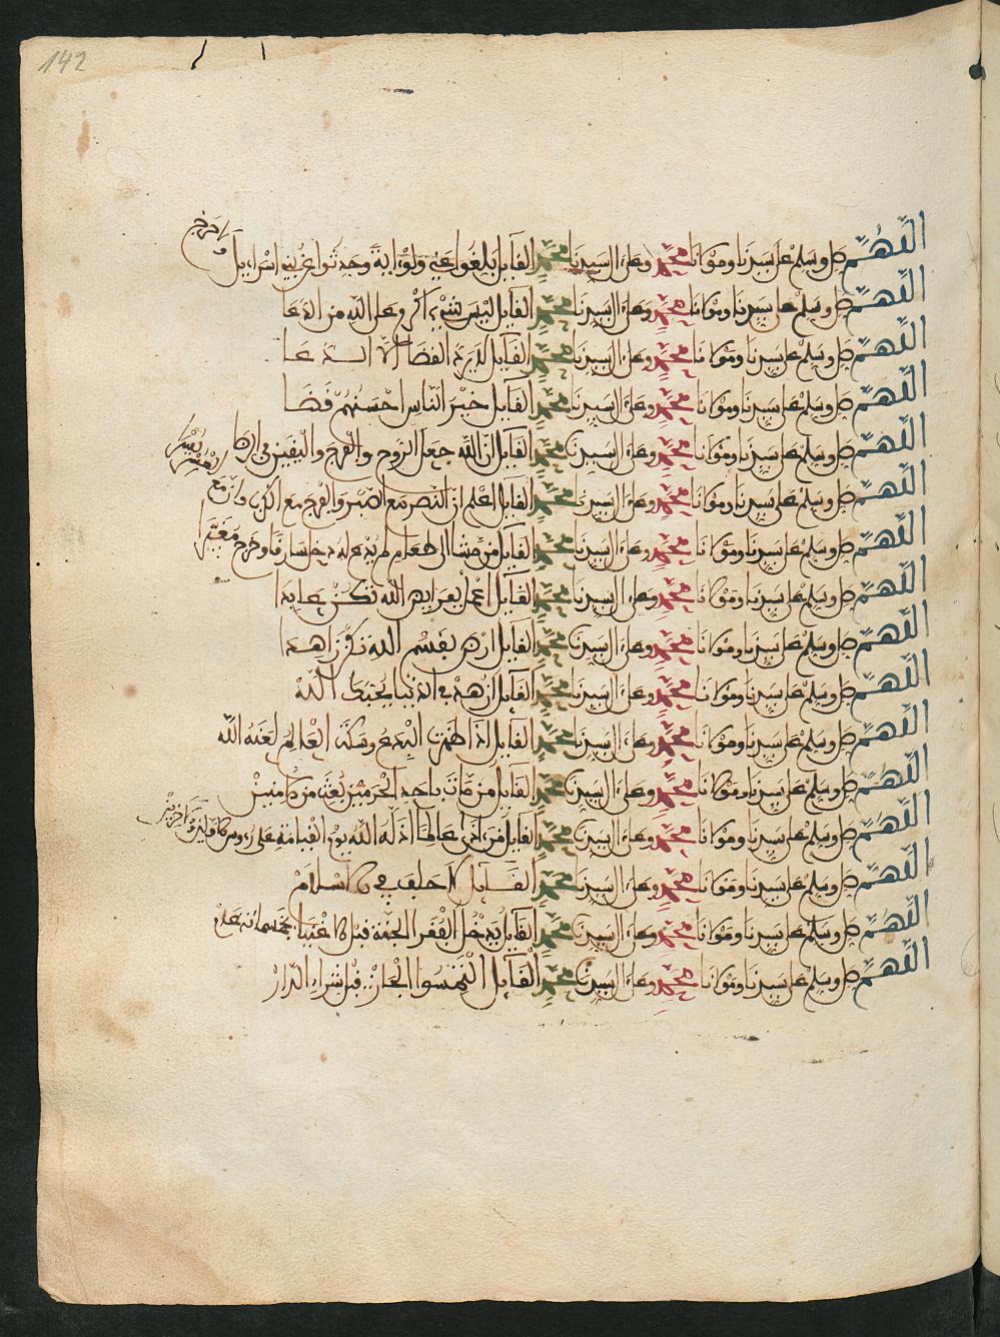 142
اللهم صل وسلم على سيدنا ومولانا محمد وعلى آل سيدنا محمد القايل بلغوا عني ولو اية وحدثوا عن بني اسراءيل ولا حرج
اللهم صل وسلم على سيدنا ومولانا محمد وعلى آل سيدنا محمد القايل ليس شيء اكرم على الله من الدعا
اللهم صل وسلم على سيدنا ومولانا محمد وعلى آل سيدنا محمد القايل لا يرد القضا الا الدعا
اللهم صل وسلم على سيدنا ومولانا محمد وعلى آل سيدنا محمد القايل خير الناس احسنهم قضا
اللهم صل وسلم على سيدنا ومولانا محمد وعلى آل سيدنا محمد القايل ان الله جعل الروح والفرج واليقين في الرضا
اللهم صل وسلم على سيدنا ومولانا محمد وعلى آل سيدنا محمد القايل اعلم ان النصر مع الصبر والفرج مع الكرب وان مع العسر يسرا
اللهم صل وسلم على سيدنا ومولانا محمد وعلى آل سيدنا محمد القايل من مشا الى طعام لم يدع له دخل سارقا وخرج مغيرا
اللهم صل وسلم على سيدنا ومولانا محمد وعلى آل سيدنا محمد القايل اعمل بفرايض الله تكن عابدا
اللهم صل وسلم على سيدنا ومولانا محمد وعلى آل سيدنا محمد القايل ارض بقسم الله تكن زاهدا
اللهم صل وسلم على سيدنا ومولانا محمد وعلى آل سيدنا محمد القايل ازهد في الدنيا يحبك الله
اللهم صل وسلم على سيدنا ومولانا محمد وعلى آل سيدنا محمد القايل اذا ظهرت البدع وسكت العالم لعنه الله
اللهم صل وسلم على سيدنا ومولانا محمد وعلى آل سيدنا محمد القايل من مات باحد الحرمين بعث من الامنين
اللهم صل وسلم على سيدنا ومولانا محمد وعلى آل سيدنا محمد القايل من اذى عالما اذله الله يوم القيامة على رءوس الاولين والاخرين
اللهم صل وسلم على سيدنا ومولانا محمد وعلى آل سيدنا محمد القايل لا حلف في الاسلام
اللهم صل وسلم على سيدنا ومولانا محمد وعلى آل سيدنا محمد القايل يدخل الفقرا الجنة قبل الاغنيا بخمسمائة عام
اللهم صل وسلم على سيدنا ومولانا محمد وعلى آل سيدنا محمد القايل التمسوا الجار قبل شراء الدار